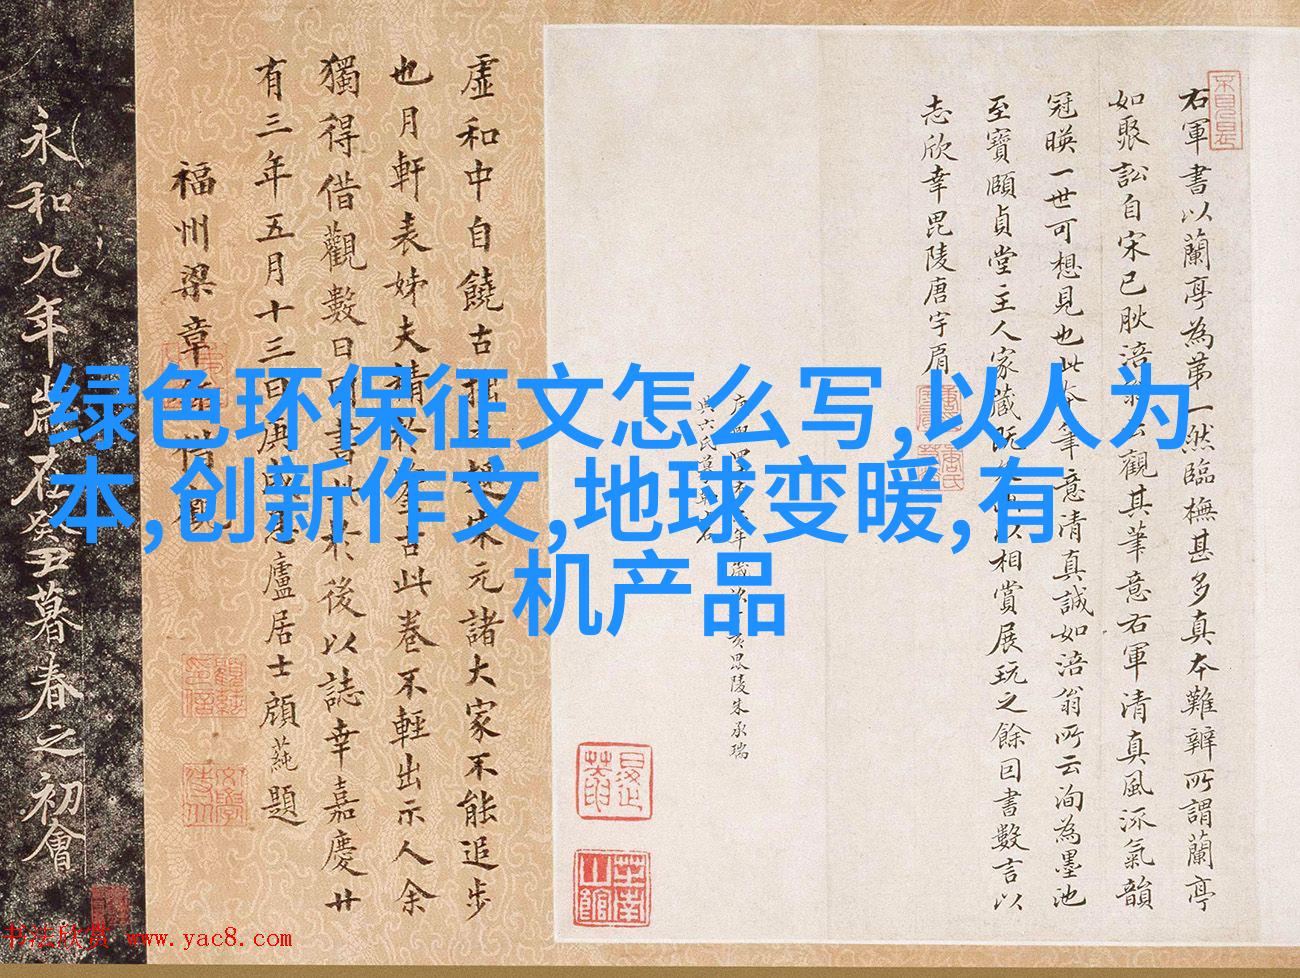 绿色环保征文怎么写,以人为
本,创新作文,地球变暖,有
机产品
右軍書以蘭亭為第一然臨橅甚多真本難辨所謂蘭亭
如聚訟自宋已
觀其筆意右軍清真風
氣韻
冠暎一世可想見也此
筆意清真誠如涪翁所云洵為墨池
至寶頤貞堂主人家藏既
以相賞展玩之餘因書數言以
志欣幸毘陵唐宇肩
毘陵朱承瑞
虛和中自饒古
宋元諸大家不能追步
也月軒表姊夫
此卷不輕出示人余
獨得借觀數日
書
於後以誌幸嘉慶廿
有三年五月十三日
廬居士顧蒓題
福州梁章
觀
永和九年歲在癸丑暮春之初會
书法欣赏 www.yac8.com